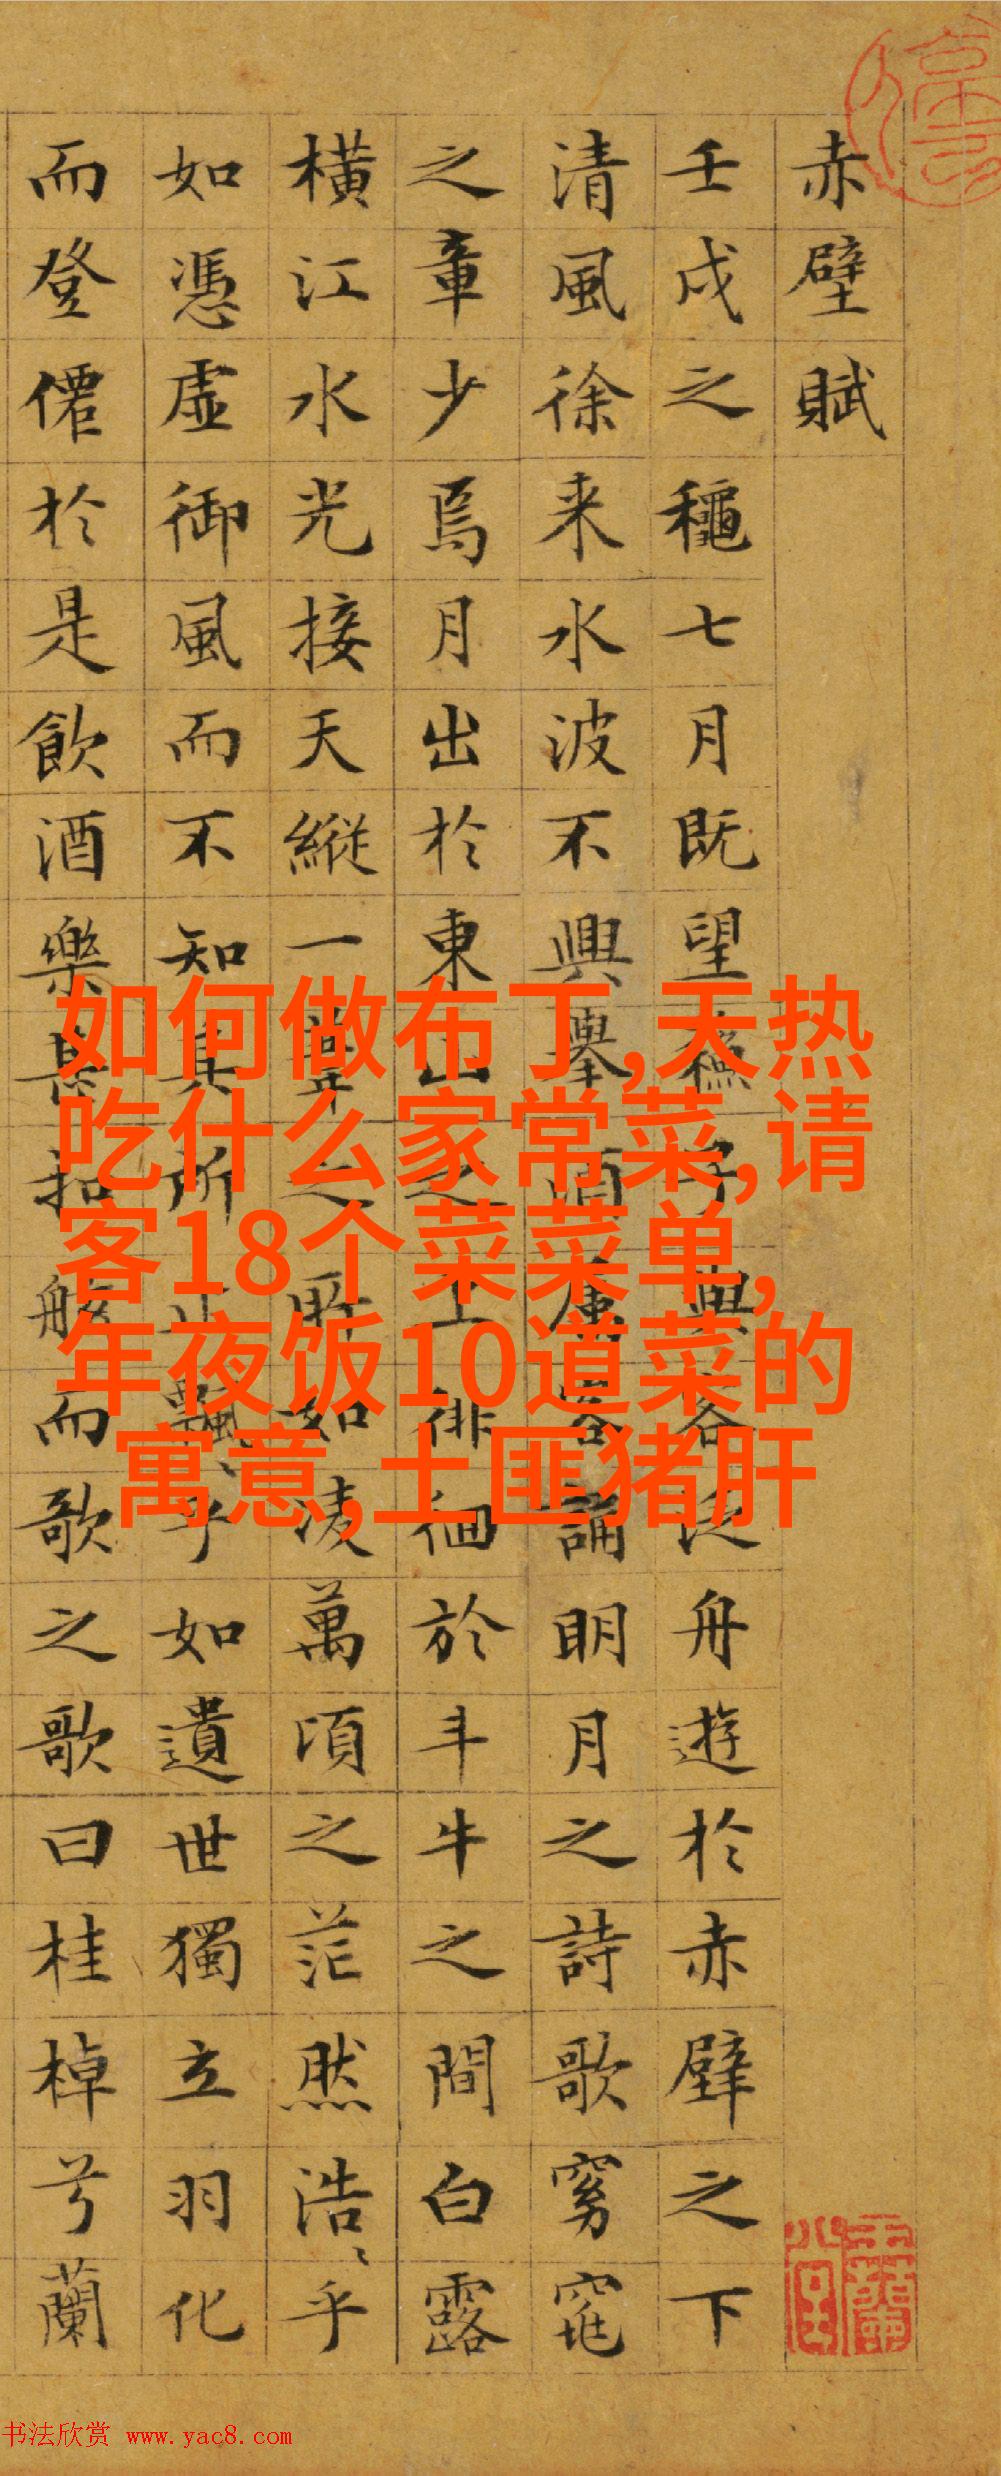 赤壁賦
壬戌之龝七月既望蘇子與客泛舟遊於赤壁之下
清風徐来水波不興舉酒屬客誦明月之詩歌窈窕
之章少焉月出於東山之上徘徊於斗牛之間白露
橫江水光接天縱一葦之所如凌萬頃之茫然浩〻乎
如憑虛御風而不知其所止飄〻乎如遺世獨立羽化
而登僊於是飲酒樂甚扣舷而歌之歌曰桂棹兮蘭
如何做布丁,天热
吃什么家常菜,请
客18个菜菜单,
年夜饭10道菜的
寓意,土匪猪肝
书法欣赏 www.yac8.com